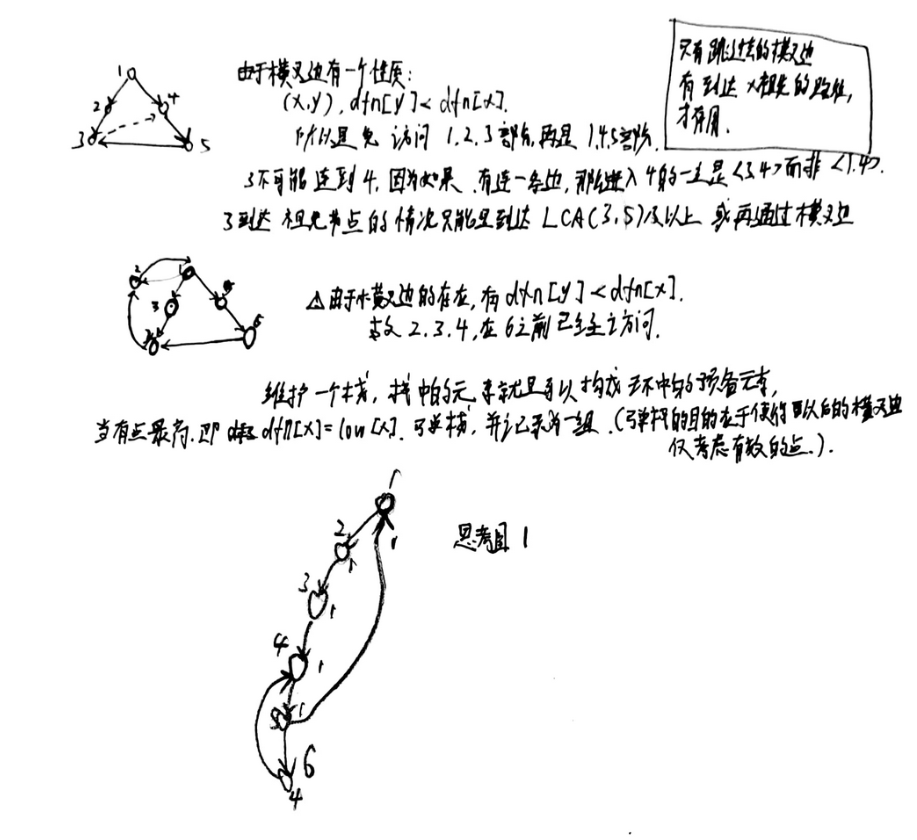 由于横叉边有一个性质：
(x,y), dfn[y]<dfn[x].
所以是先 访问 1,2,3 部分, 再是 1,4,5 部分.
只有跳过去的横叉边
有到达 x祖先的路径,
才有用.
1
2
4
3
5
3不可能连到4, 因为如果 有连一条边, 那么进入4的一定是<3,4>而非<1,4>.
3到达 祖先节点的情况只能是到达 LCA(3,5)及以上 或再通过横叉边
2
1
3
6
△由于横叉边的存在, 有 dfn[y]<dfn[x].
故 2.3.4, 在6之前已经访问.
维护一个栈, 栈中的元素就是可以构成环中的预备元素,
当有点最高, 即 dfn[x]=low[x]. 可弹栈, 并记录为一组.(弹栈的目的在于使得以后的横叉边
仅考虑有效的点.).
1
2
1
1
思考图 1
3
1
4
1
5
1
6
4